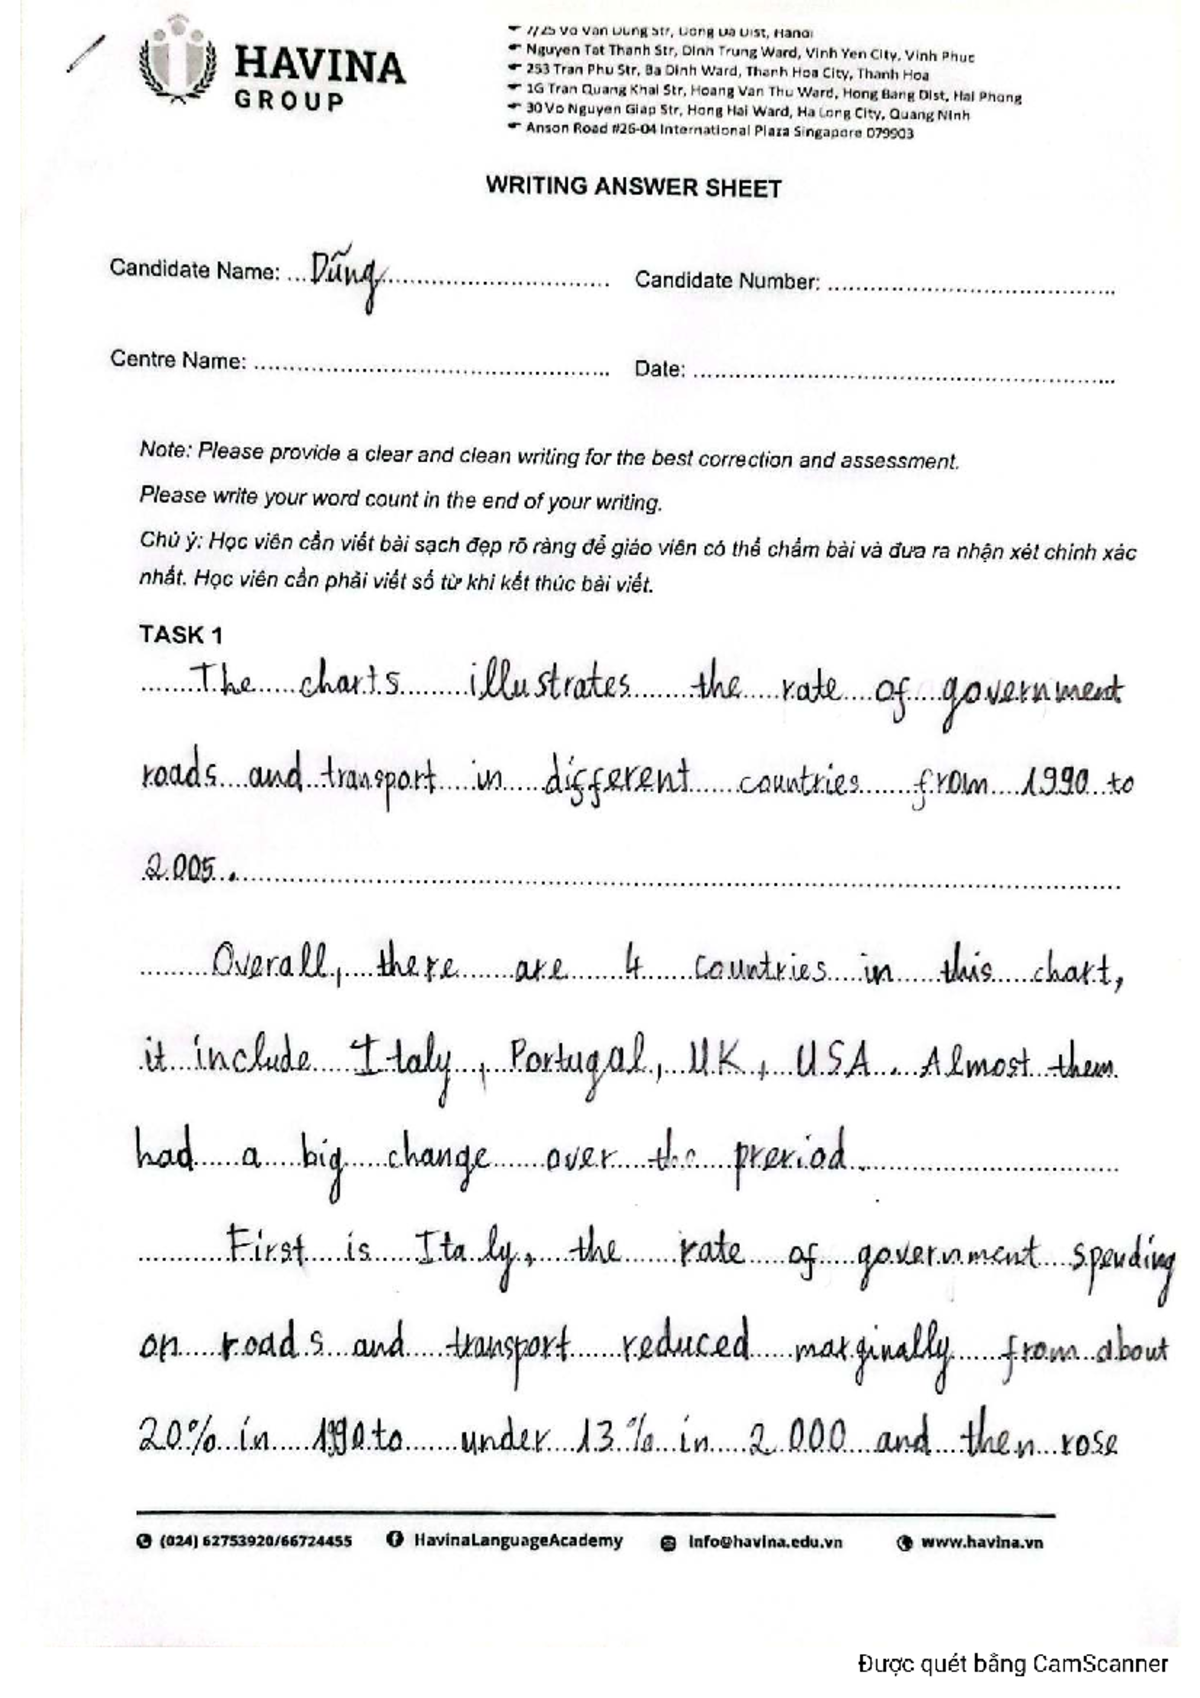 HAVINA
GROUP
7/25 Vo Van Dung Str, Dong Da Dist, Hanoi
Nguyen Tat Thanh Str, Dinh Trung Ward, Vinh Yen City, Vinh Phuc
253 Tran Phu Str, Ba Dinh Ward, Thanh Hoa City, Thanh Hoa
1G Tran Quang Khai Str, Hoang Van Thu Ward, Hong Bang Dist, Hai Phong
30 Vo Nguyen Giap Str, Hong Hai Ward, Ha Long City, Quang Ninh
Anson Road #26-04 International Plaza Singapore 079903
WRITING ANSWER SHEET
Candidate Name: Dũng Candidate Number:
Centre Name: Date:
Note: Please provide a clear and clean writing for the best correction and assessment.
Please write your word count in the end of your writing.
Chú ý: Học viên cần viết bài sạch đẹp rõ ràng để giáo viên có thể chấm bài và đưa ra nhận xét chính xác
nhất. Học viên cần phải viết số từ khi kết thúc bài viết.
TASK 1
The charts illustrates the rate of government
roads and transport in different countries from 1990 to
2005.
Overall, there are 4 countries in this chart,
it include Italy, Portugal, UK, USA. Almost them
had a big change over the preriod.
First is Italy, the rate of government spending
on roads and transport reduced marginally from about
20% in 1990 to under 13% in 2000 and then rose
(024) 62753920/66724455 HavinaLanguageAcademy info@havina.edu.vn www.havina.vn
Được quét bằng CamScanner